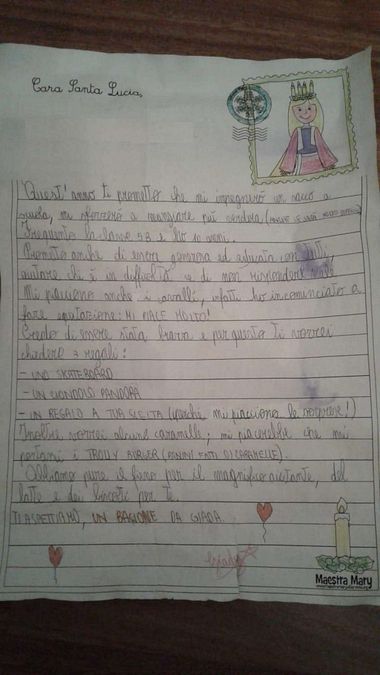 Cara Santa Lucia,
Quest'anno ti prometto che mi impegnerò un sacco a
scuola, mi sforzerò a mangiare più verdura
Frequento la classe 5B e ho 10 anni.
Prometto anche di essere generosa ed educata con tutti,
aiutare chi è in difficoltà e di non rispondere male
Mi piacciono anche i cavalli, infatti ho incominciato a
fare equitazione: MI PIACE MOLTO!
Credo di essere stata brava e per questo ti vorrei
chiedere 3 regali:
- UNO SKATEBOARD
- UN CIONDOLO PANDORA
- UN REGALO A TUA SCELTA (perché mi piacciono le sorprese!)
Inoltre vorrei alcune caramelle; mi piacerebbe che mi
portassi i TROLLY BURGER (PANINI FATTI DI CARAMELLE).
Abbiamo pure il fieno per il magnifico aiutante, del
latte e dei biscotti per te.
TI ASPETTIAMO, UN BACIONE DA GIADA.
Giada
Maestra Mary